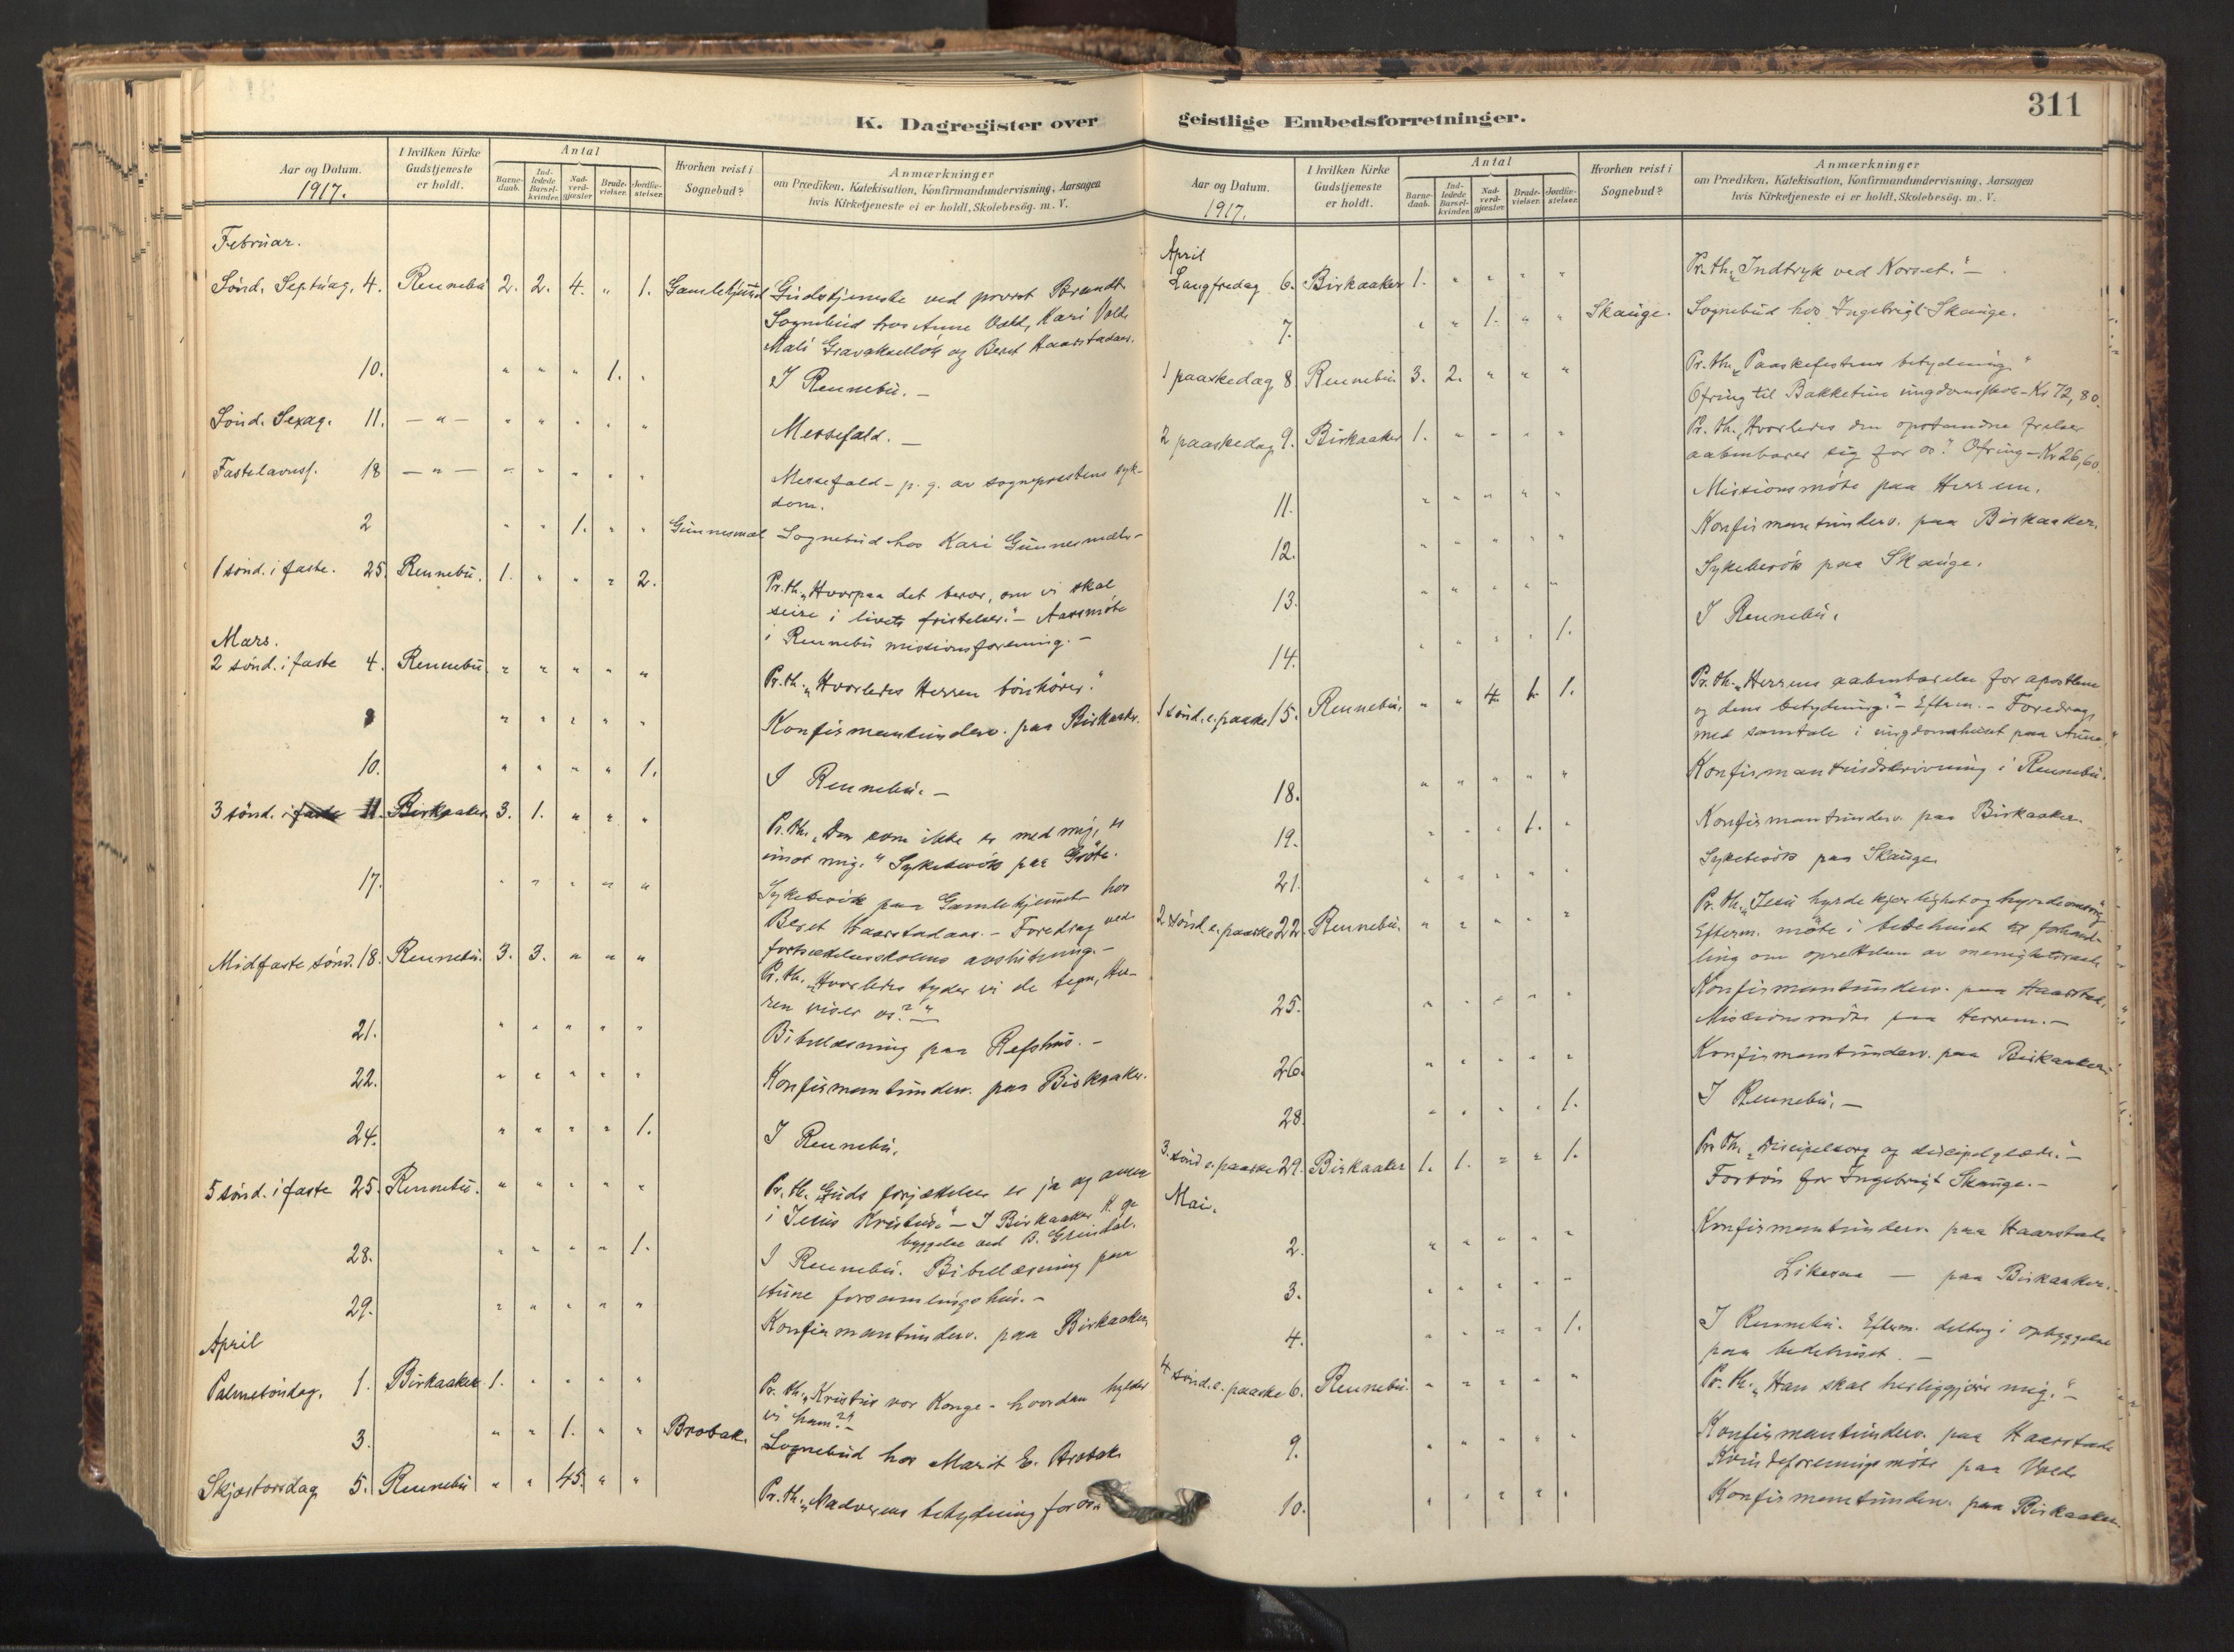 311
K. Dagregister over geistlige Embedsforretninger.
Aar og Datum. 1917. I hvilken Kirke Gudstjeneste er holdt. Antal Barnedaab. Indledede Barselkvinder. Nadverdgjæster Brudevielser. Jordfæstelser. Hvorhen reist i Sognebud? Anmærkninger om Prædiken, Katekisation, Konfirmandundervisning, Aarsagen hvis Kirketjeneste ei er holdt, Skolebesög. m. V.
Februar.
Sönd. Septuag. 4. Rennebu 2. 2. 4. " 1. Gamlehjem Gudstjeneste ved provst Brandt
Sognebud hos Anne Vold, Kari Vold
Mali Gravaksellök og Beret Haarstadaas.
10. " " " 1. " I Rennebu. -
Sönd. Sexag. 11. - " - " " " " " Messefald. -
Fastelavnss. 18 - " - " " " " " Messefald - p. g. av sogneprestens syk-
dom.
2 " " 1. " " Gunnesmæl Sognebud hos Kari Gunnesmæl -
1 sönd. i faste. 25. Rennebu. 1. " " " 2. Pr. th. "Hvorpaa det beror, om vi skal
seire i livets fristelser." - Aarsmöte
i Rennebu missionsforening. -
Mars.
2 sönd. i faste 4. Rennebu. " " " " " Pr. th. "Hvorledes Herren bönhörer."
8 " " " " " Konfirmantunderv. paa Birkaaker.
10. " " " " 1. I Rennebu. -
3 sönd. i faste 11. Birkaaker. 3. 1. " " " Pr. th. "Den som ikke er med mig, er
imot mig." Sykebesök paa Gröte.
17. " " " " " Sykebesök paa Gamlehjemmet hos
Beret Haarstadaas. - Foredrag ved
fortsættelsesskolens avslutning. -
Midfaste sönd. 18. Rennebu. 3. 3. " " " Pr. th. "Hvorledes tyder vi de tegn, Her-
ren viser os?" -
21. " " " " " Bibellæsning paa Refshus. -
22. " " " " " Konfirmantunderv. paa Birkaaker.
24. " " " " 1. I Rennebu.
5 sönd. i faste 25. Rennebu. " " " " " Pr. th. "Guds forjættelser er ja og amen
i Jesus Kristus." - I Birkaaker K. op
byggelse ved B. Grindal.
28. " " " " 1. I Rennebu. Bibellæsning paa
Aune forsamlingshus. -
29. " " " " " Konfirmantunderv. paa Birkaaker
April
Palmesöndag. 1. Birkaaker 1. " " " " Pr. th. "Kristus vor Konge - hvordan hylder
vi ham?" -
3. " " 1. " " Brobak. Sognebud hos Marit E. Brobak
Skjærtorsdag 5. Rennebu " " 45. " " Pr. th. "Nadverens betydning for os."
Aar og Datum. 1917. I hvilken Kirke Gudstjeneste er holdt. Antal Barnedaab. Indledede Barselkvinder. Nadverdgjæster Brudevielser. Jordfæstelser. Hvorhen reist i Sognebud? Anmærkninger om Prædiken, Katekisation, Konfirmandundervisning, Aarsagen hvis Kirketjeneste ei er holdt, Skolebesög. m. V.
April
Langfredag 6. Birkaaker 1. " " " " Pr. th. "Indtryk ved Korset." -
7. " " 1. " " Skauge. Sognebud hos Ingebrigt Skauge.
1 paaskedag 8. Rennebu. 3. 2. " " " Pr. th. "Paaskefestens betydning"
Ofring til Bakketun ungdomsskole - Kr 72,80.
2 paaskedag 9. Birkaaker 1. " " " " Pr. th. "Hvorledes den opstandne frelser
aabenbarer sig for os." Ofring - Kr 26,60.
11. " " " " " Missionsmöte paa Herrem.
12. " " " " " Konfirmantunderv. paa Birkaaker.
13. " " " " " Sykebesök paa Skauge.
14. " " " " 1. I Rennebu.
1 sönd. e. paaske 15. Rennebu. " " 4. 1. 1. Pr. th. "Herrens aabenbarelse for apostlene
og dens betydning." - Efterm. - Foredrag
med samtale i ungdomshuset paa Aune."
18. " " " " " Konfirmantindskrivning i Rennebu.
19. " " " 1. " Konfirmantunderv. paa Birkaaker.
21. " " " " " Sykebesök paa Skauge
2. sönd. e. paaske 22. Rennebu. " " " " " Pr. th. "Jesu hyrde kjærlighet og hyrdeomsorg"
Efterm. möte i bedehuset til forhand-
ling om oprettelsen av menighetsraad
25. " " " " " Konfirmantunderv. paa Haarstad.
Missionsmöte paa Herrem. -
26. " " " " " Konfirmantunderv. paa Birkaaker.
28. " " " " 1. I Rennebu. -
3. sönd e. paaske 29. Birkaaker 1. 1. " " 1. Pr. th. "Discipelsorg og discipelglæde." -
Forbön for Ingebrigt Skauge. -
Mai.
2. " " " " " Konfirmantunderv. paa Haarstad
3. " " " " " Likesaa - paa Birkaaker.
4. " " " " 1. I Rennebu. Efterm. deltog i opbyggelse
paa bedehuset. -
4 sönd. e. paaske 6. Rennebu. " " " " " Pr. th. "Han skal herliggjöre mig." -
9. " " " " " Konfirmantunderv. paa Haarstad
Kvindeforeningsmöte paa Vold
10. " " " " " Konfirmantunderv. paa Birkaaker.